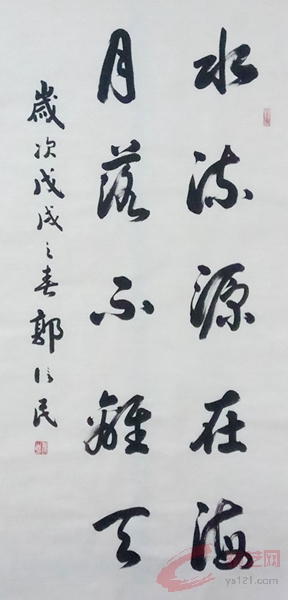 水流源在海
月落不離天
歲次戊戌之春 郭信民
艺网
ys121.com